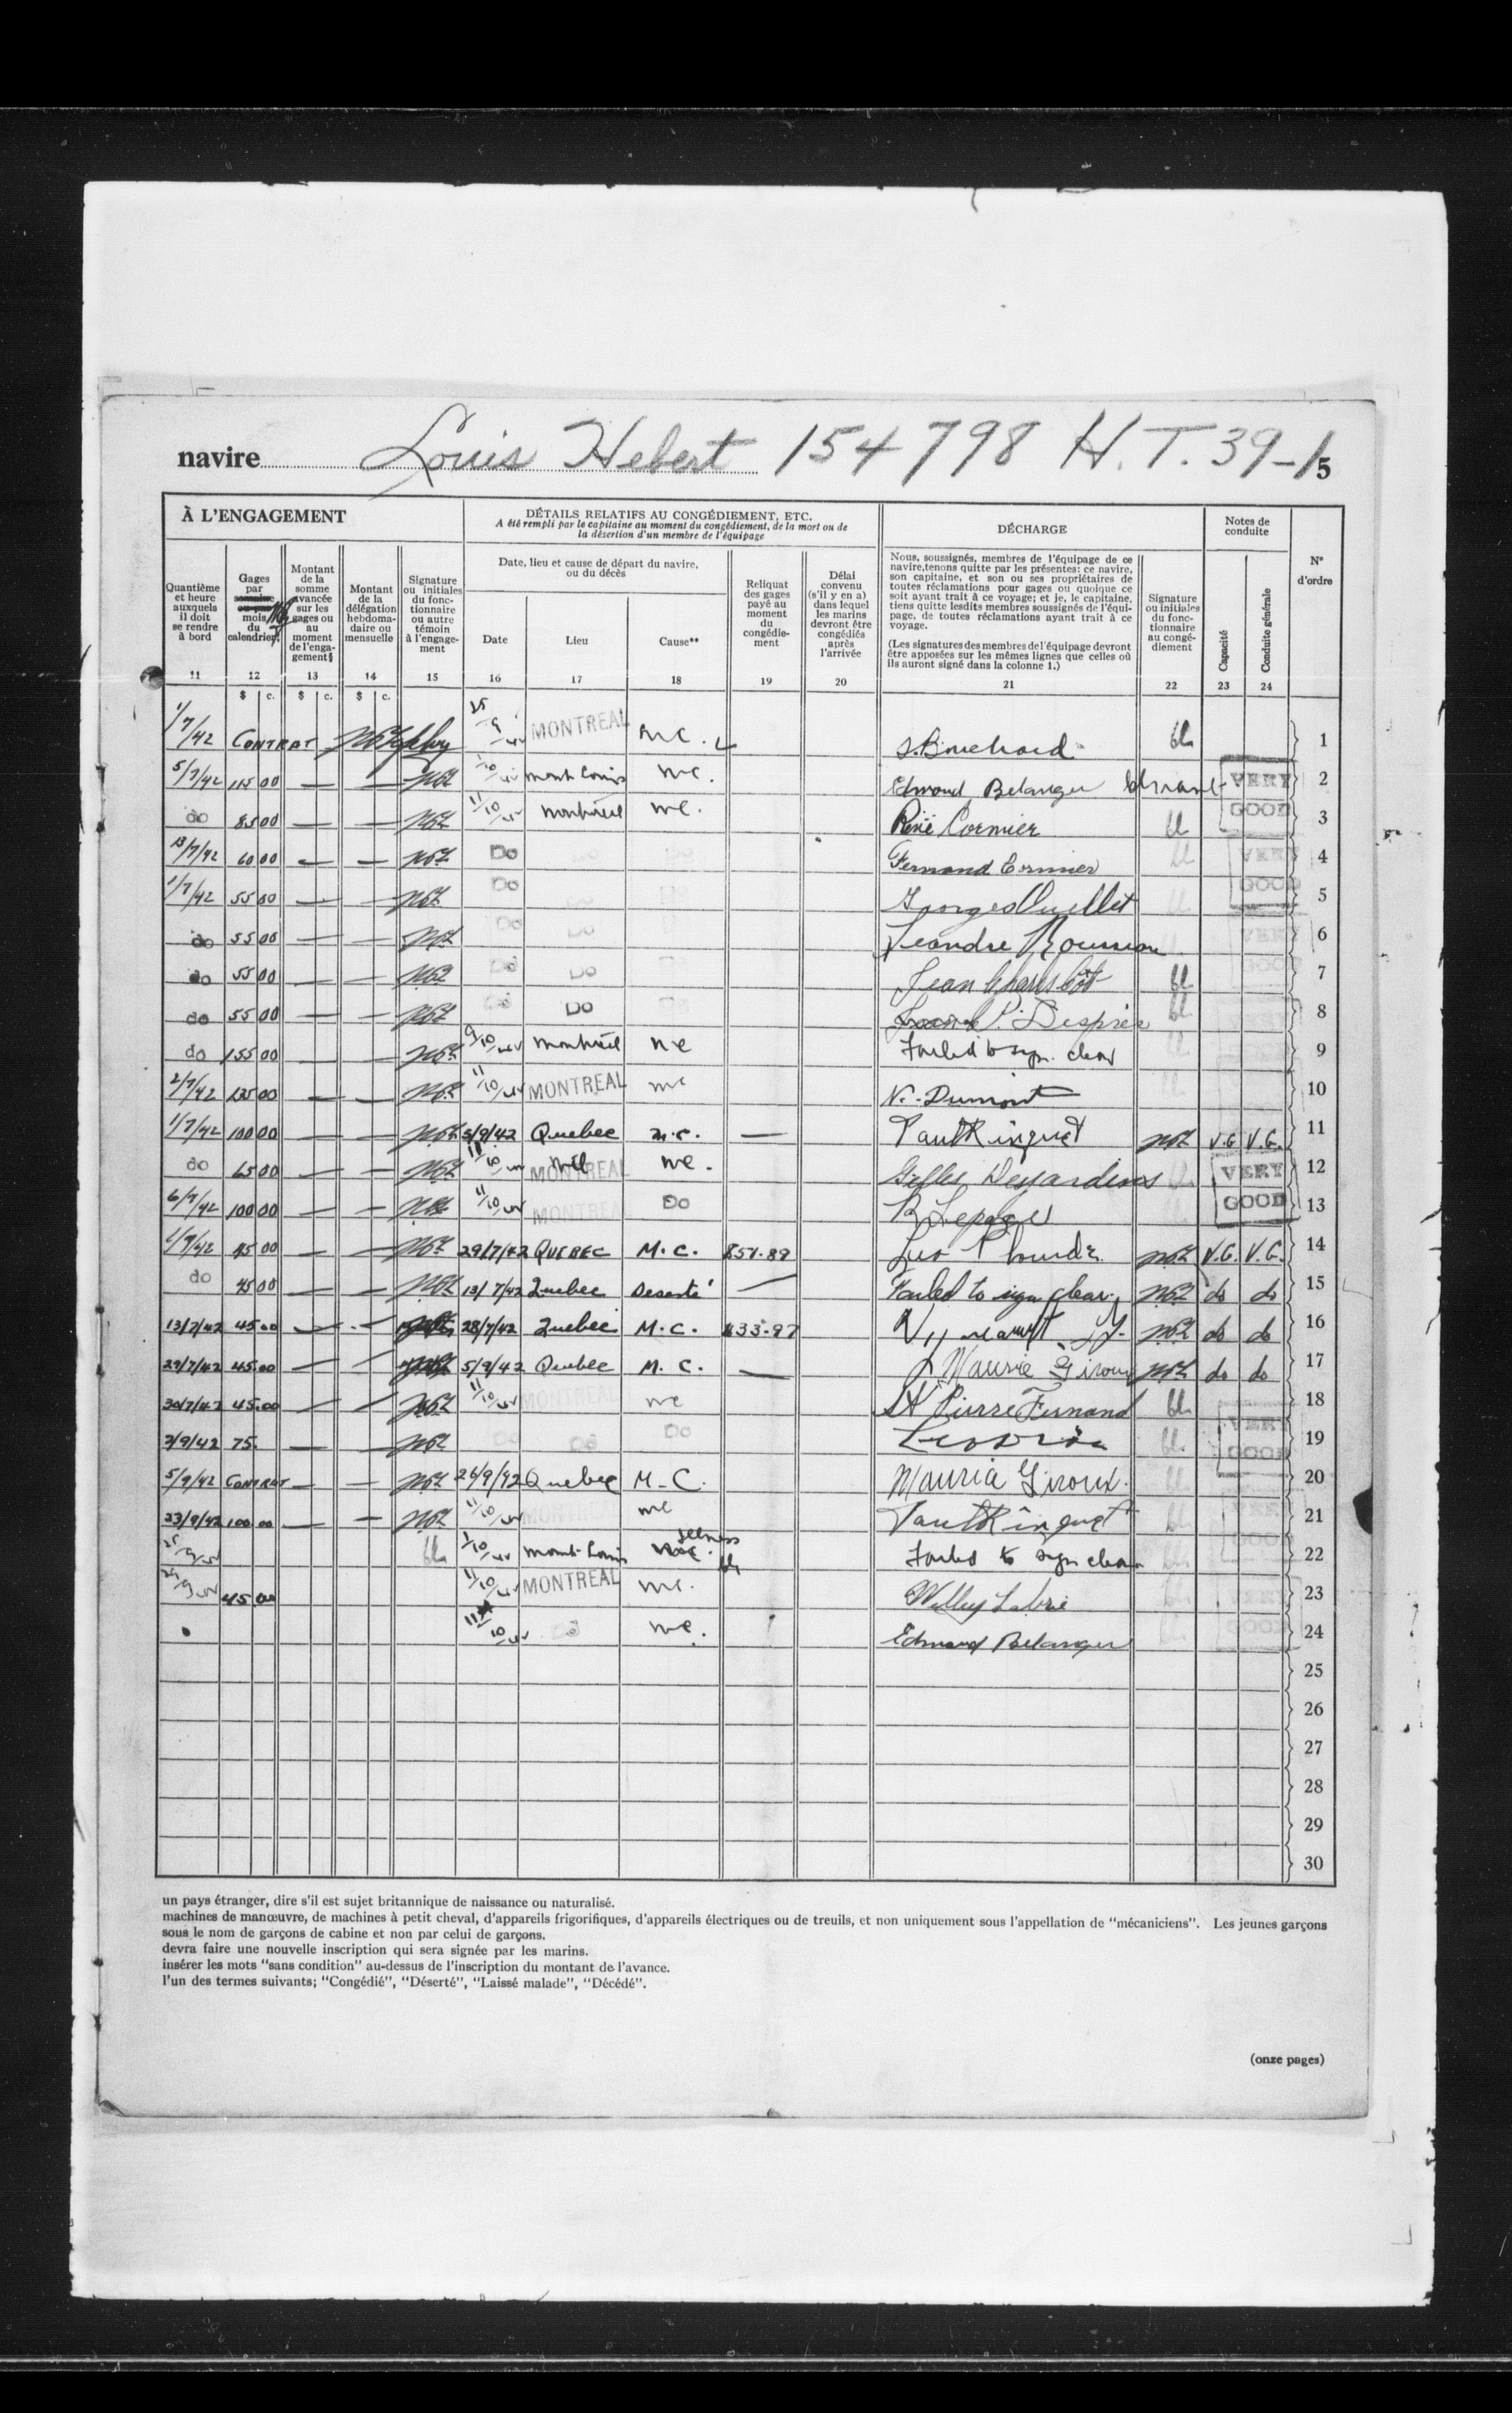 navire Louis Hebert 154798 H.T. 39-1 5
À L'ENGAGEMENT
DÉTAILS RELATIFS AU CONGÉDIEMENT, ETC.
A été rempli par le capitaine au moment du congédiement, de la mort ou de
la désertion d'un membre de l'équipage
DÉCHARGE
Notes de
conduite
N°
d'ordre
Quantième
et heure
auxquels
il doit
se rendre
à bord
Gages
par
semaine
ou par
mois
du
calendrier
Montant
de la
somme
avancée
sur les
gages ou
au
moment
de l'enga-
gement§
Montant
de la
délégation
hebdoma-
daire ou
mensuelle
Signature
ou initiales
du fonc-
tionnaire
ou autre
témoin
à l'engage-
ment
Date, lieu et cause de départ du navire,
ou du décès
Date
Lieu
Cause**
Reliquat
des gages
payé au
moment
du
congédie-
ment
Délai
convenu
(s'il y en a)
dans lequel
les marins
devront être
congédiés
après
l'arrivée
Nous, soussignés, membres de l'équipage de ce
navire,tenons quitte par les présentes: ce navire,
son capitaine, et son ou ses propriétaires de
toutes réclamations pour gages ou quoique ce
soit ayant trait à ce voyage; et je, le capitaine,
tiens quitte lesdits membres soussignés de l'équi-
page, de toutes réclamations ayant trait à ce
voyage.
(Les signatures des membres de l'équipage devront
être apposées sur les mêmes lignes que celles où
ils auront signé dans la colonne 1.)
Signature
ou initiales
du fonc-
tionnaire
au congé-
diement
Capacité
Conduite générale
11 12 13 14 15 16 17 18 19 20 21 22 23 24
$ c. $ c. $ c.
1/7/42 CONTRAT MONTREAL M.C. 1
5/7/42 115 00 — — Mont Louis M.C. Edmond Belanger VERY 2
do 85 00 — — 11/10/42 Montréal M.C. René Cormier GOOD 3
13/7/42 60 00 — — Do Fernand Cormier VERY 4
1/7/42 55 00 — — Do Georges Ouellet GOOD 5
do 55 00 — — Do Do Leandre Rousseau VERY 6
do 55 00 — — Do Do Jean Charles Côté 7
do 55 00 — — Do Do P. Després 8
do 155 00 — 9/10/42 Montréal M.C. Failed to sign clear 9
2/7/42 135 00 — — 11/10/42 MONTREAL M.C. N. Dumont 10
1/7/42 100 00 — — 5/9/42 Quebec M.C. — V.G. V.G. 11
do 65 00 — — 11/10/42 MONTREAL M.C. Gilles Desjardins VERY 12
6/7/42 100 00 — — 11/10/42 MONTREAL Do Lepage GOOD 13
45 00 — — 29/7/42 QUEBEC M.C. V.G. V.G. 14
do 45 00 — — 13/7/42 Quebec Deserté — Failed to sign clear do do 15
13/7/42 45.00 — — 28/7/42 Quebec M.C. $33.97 do do 16
29/7/42 45.00 — — 5/9/42 Quebec M.C. — Maurice Giroux do do 17
30/7/42 45.00 — — 11/10/42 MONTREAL M.C. St Pierre Fernand VERY 18
3/9/42 75. — — Do Do Do GOOD 19
5/9/42 CONTRAT — — 26/9/42 Quebec M.C. Mauria Giroux. 20
23/9/42 100 00 — — 11/10/42 MONTREAL M.C. VERY 21
1/10/42 Mont-Louis Illness Failed to sign clear GOOD 22
45 00 11/10/42 MONTREAL M.C. Willey Labrie VERY 23
11/10/42 Do M.C. Edmond Belanger GOOD 24
25
26
27
28
29
30
un pays étranger, dire s'il est sujet britannique de naissance ou naturalisé.
machines de manœuvre, de machines à petit cheval, d'appareils frigorifiques, d'appareils électriques ou de treuils, et non uniquement sous l'appellation de "mécaniciens". Les jeunes garçons
sous le nom de garçons de cabine et non par celui de garçons.
devra faire une nouvelle inscription qui sera signée par les marins.
insérer les mots "sans condition" au-dessus de l'inscription du montant de l'avance.
l'un des termes suivants; "Congédié", "Déserté", "Laissé malade", "Décédé".
(onze pages)